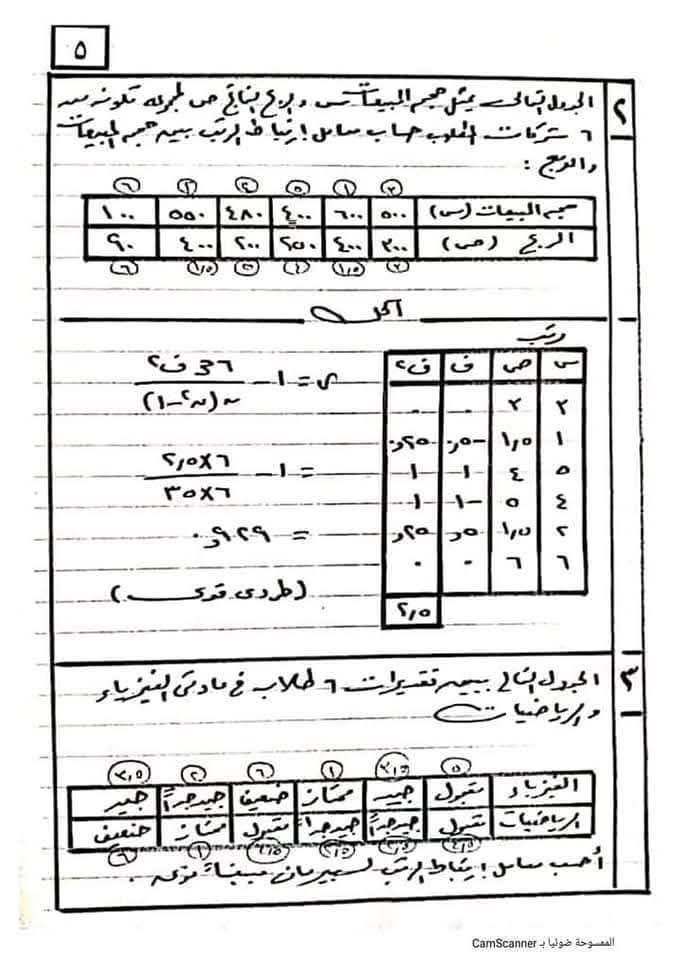 ٥
٢ الجدول التالى يمثل حجم المبيعات س والربح الناتج ص لمجموعة تكونة من
٦ شركات المطلوب حساب معامل ارتباط الرتب بين حجم المبيعات
والربح :
٣ ١ ٥ ٤ ٢ ٦
حجم المبيعات (س) ٥٠٠ ٦٠٠ ٤٠٠ ٤٨٠ ٥٥٠ ١٠٠
الربح (ص) ٣٠٠ ٤٠٠ ٢٥٠ ٢٠٠ ٤٠٠ ٩٠
٣ ١,٥ ٤ ٥ ١,٥ ٦
الحل
رتب
س ص ف ف٢
٣ ٣ ٠ ٠
١ ١,٥ -٥,٠ ٢٥,٠
٥ ٤ ١ ١
٤ ٥ -١ ١
٢ ١,٥ ٥,٠ ٢٥,٠
٦ ٦ ٠ ٠
٢,٥
ر = ١ - ٦ مجـ ف٢
ن (ن٢-١)
= ١ - ٦×٢,٥
٦×٣٥
= ٩٢٩,٠
(طردى قوى)
٣ الجدول التالى يبين تقديرات ٦ طلاب فى مادتى الفيزياء
والرياضيات
٥ ٣,٥ ١ ٦ ٢ ٣,٥
الفيزياء مقبول جيد ممتاز ضعيف جيد جداً جيد
الرياضيات مقبول جيد جداً جيد جداً مقبول ممتاز ضعيف
٤,٥ ٢,٥ ٢,٥ ٤,٥ ١ ٦
أحسب معامل ارتباط الرتب لسبيرمان مبيناً نوعه .
الممسوحة ضوئيا بـ CamScanner